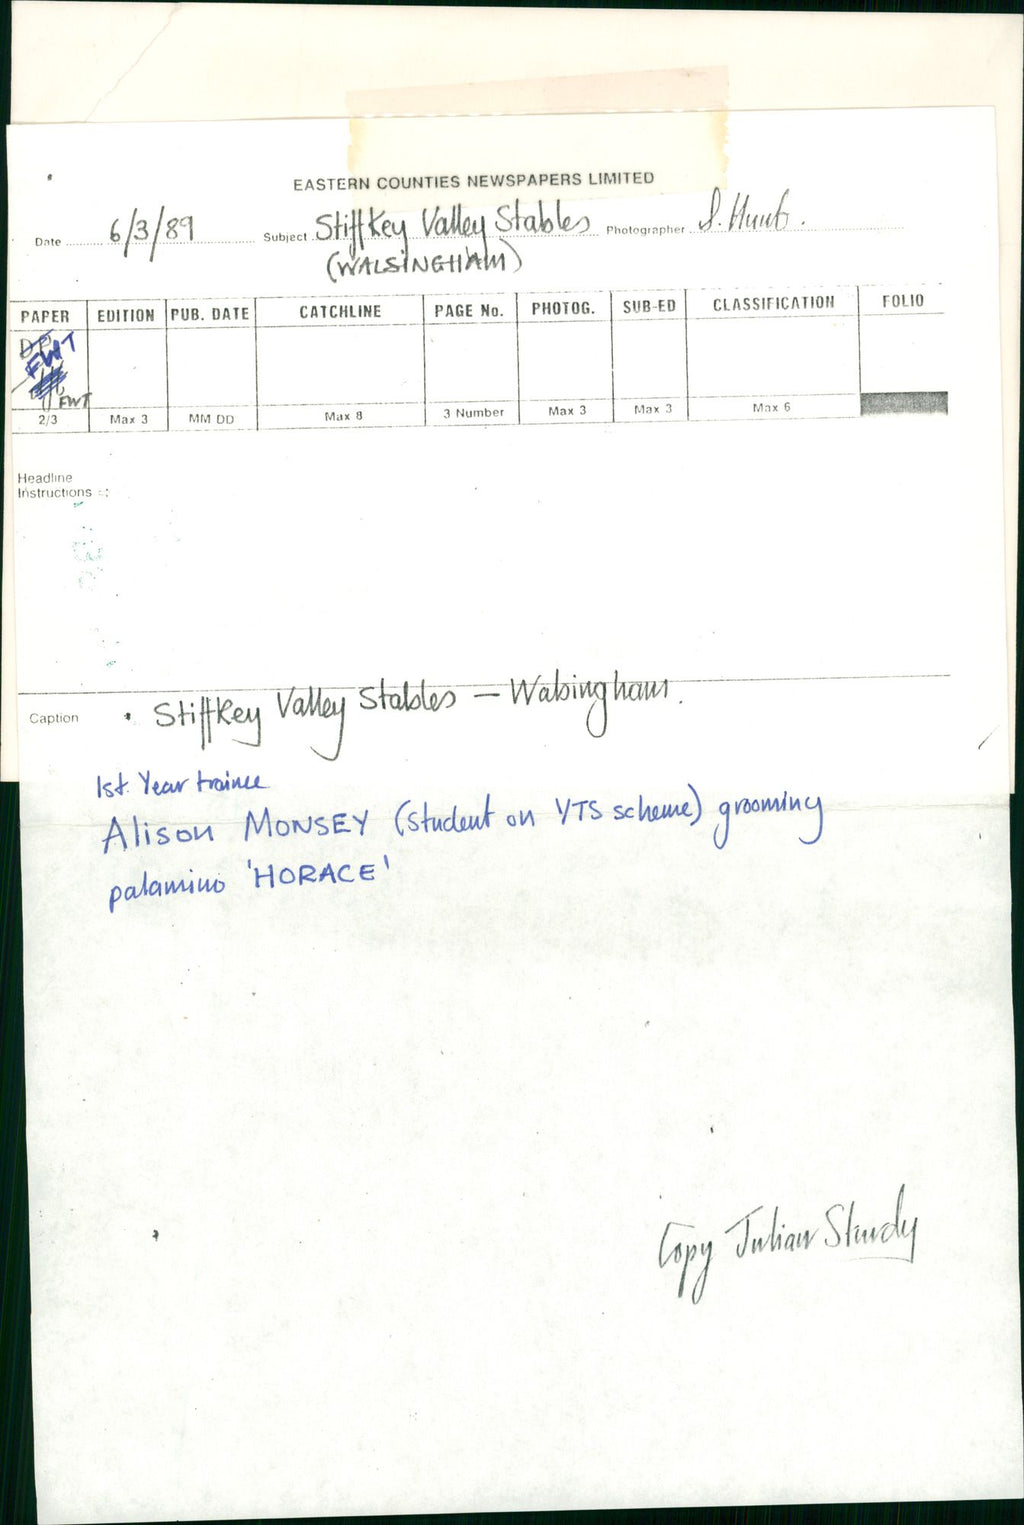 EASTERN COUNTIES NEWSPAPERS LIMITED
Date 6/3/89 Subject Stiffkey Valley Stables Photographer S. Hunt.
(WALSINGHAM)
PAPER EDITION PUB. DATE CATCHLINE PAGE No. PHOTOG. SUB-ED CLASSIFICATION FOLIO
FWT
FWT
2/3 Max 3 MM DD Max 8 3 Number Max 3 Max 3 Max 6
Headline
Instructions :
Caption · Stiffkey Valley Stables — Walsingham.
1st Year trainee
Alison MONSEY (student on YTS scheme) grooming
palamino 'HORACE'
Copy Julian Sturdy